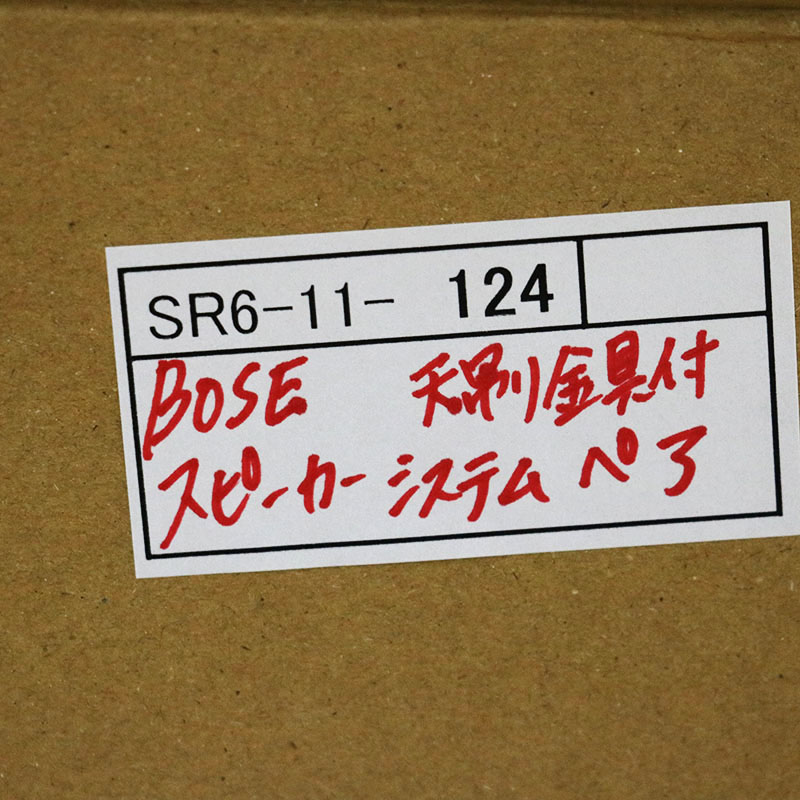 SR6-11- 124
BOSE 天吊り金具付
スピーカーシステム ペア